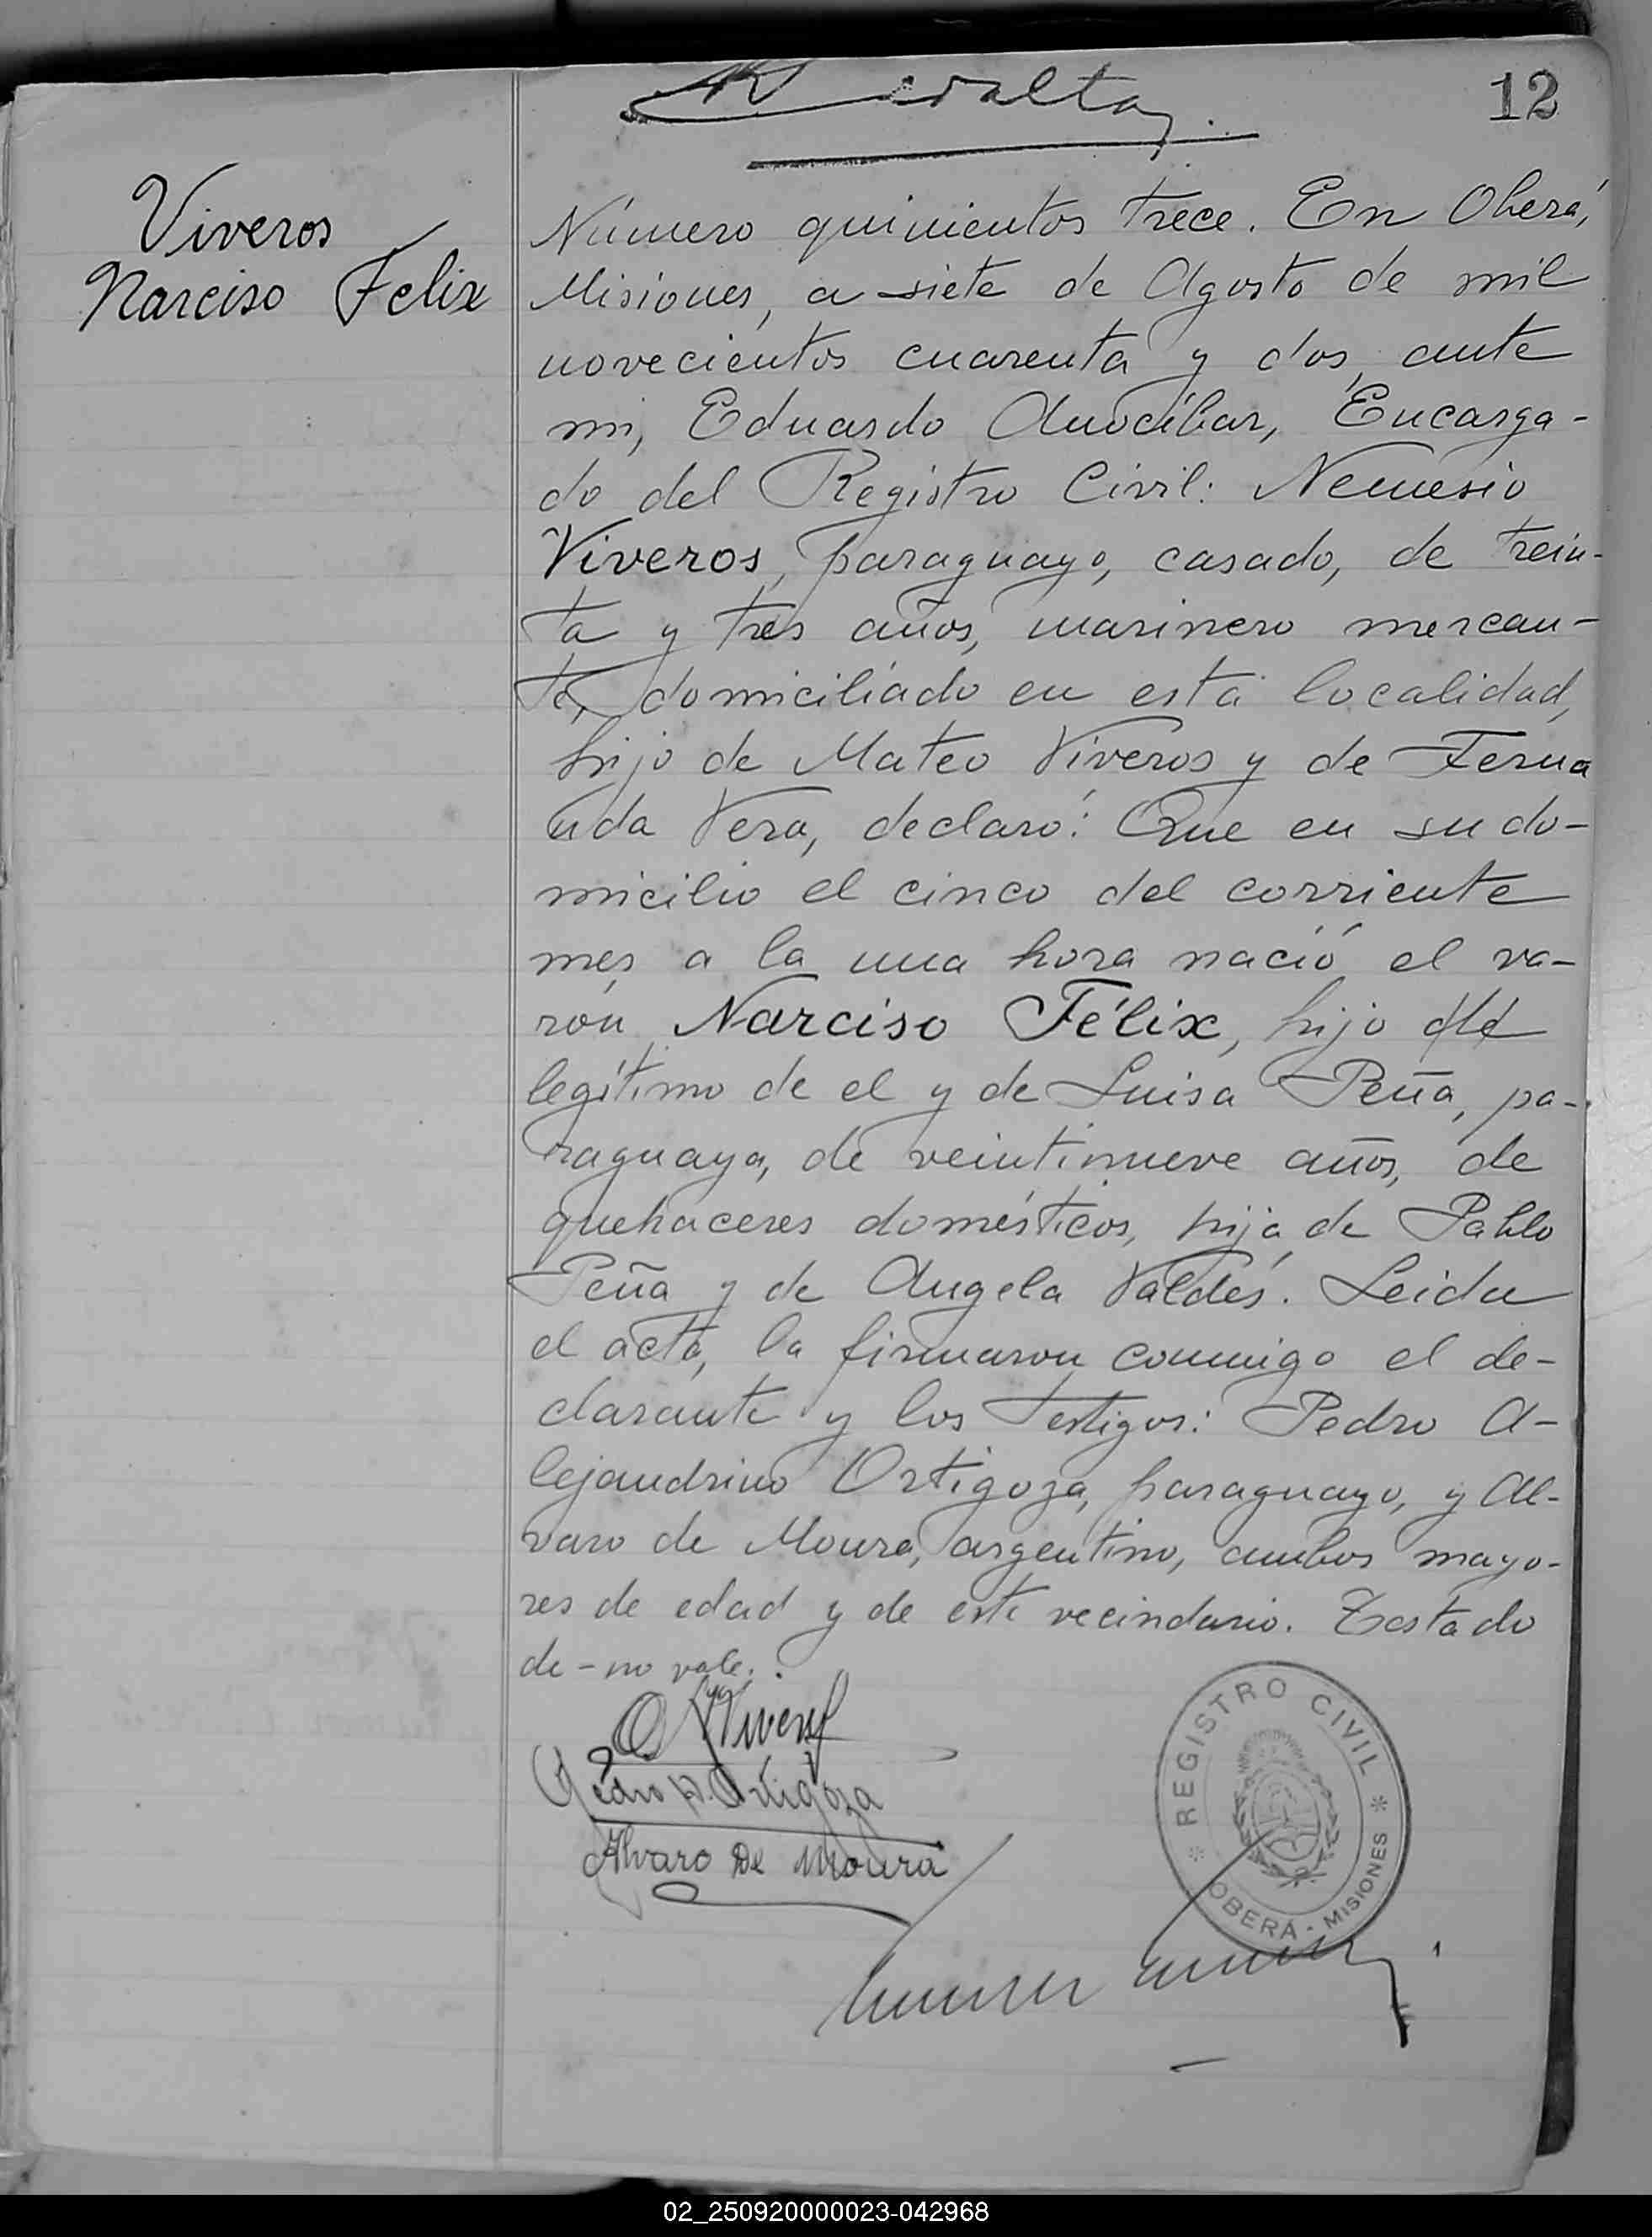 12
Viveros
Narciso Felix
Número quinientos trece. En Oberá,
Misiones, a siete de Agosto de mil
novecientos cuarenta y dos, ante
mi, Eduardo Anocíbar, Encarga-
do del Registro Civil: Nemesio
Viveros, paraguayo, casado, de trein-
ta y tres años, marinero mercan-
te, domiciliado en esta localidad,
hijo de Mateo Viveros y de Ferna
nda Vera, declaró: Que en su do-
micilio el cinco del corriente
mes a la una hora nació el va-
rón Narciso Félix, hijo de
legítimo de el y de Luisa Peña, pa-
raguaya, de veintinueve años, de
quehaceres domésticos, hija de Pablo
Peña y de Angela Valdés. Leida
el acta, la firmaron conmigo el de-
clarante y los testigos: Pedro A-
lejandrino Ortigoza, paraguayo, y Al-
varo de Moura, argentino, ambos mayo-
res de edad y de este vecindario. Testado
de - no vale.
Pedro A. Ortigoza
Alvaro De Moura
REGISTRO CIVIL
OBERÁ - MISIONES
02_250920000023-042968